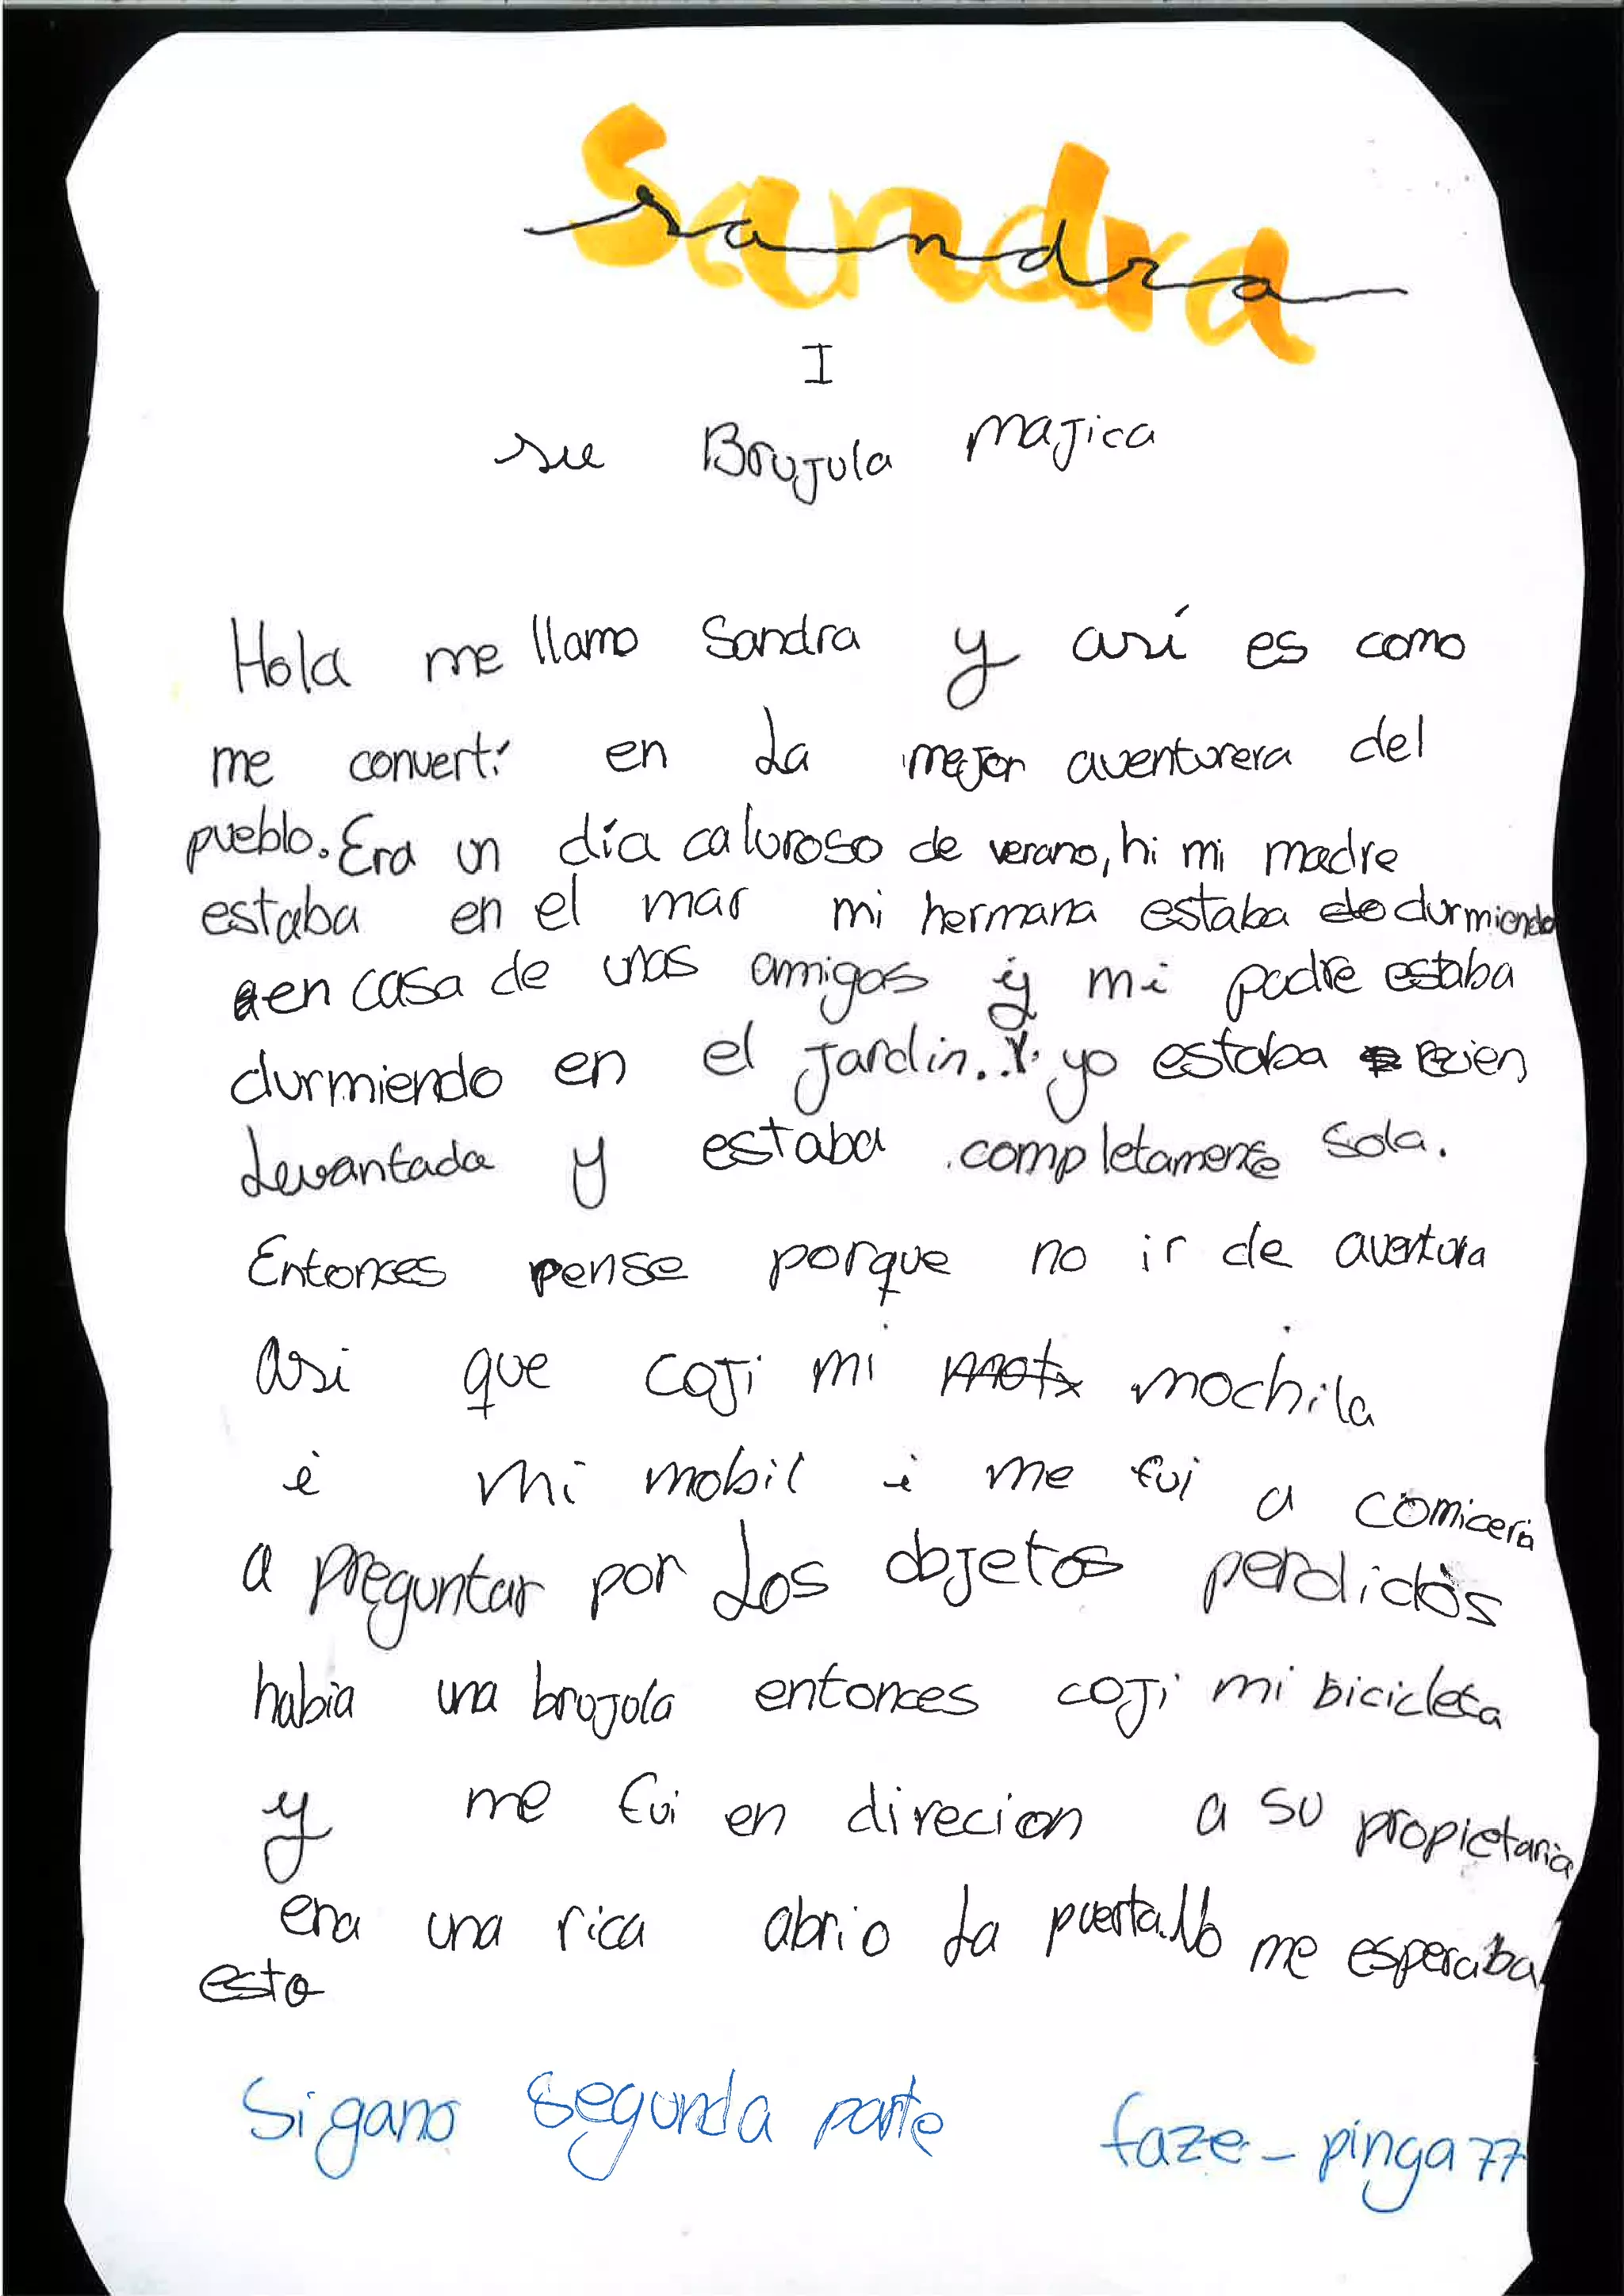 Sandra
I
su Brujula majica
Hola me llamo Sandra y así es como
me convertí en la mejor aventurera del
pueblo. Era un día caluroso de verano, hi mi madre
estaba en el mar mi hermana estaba do durmiendo
en casa de unas amigas y mi padre estaba
durmiendo en el jardin... Y yo estaba recien
levantada y estaba completamente sola.
Entonces pense porque no ir de aventura
asi que coji mi motx mochila
i mi mobil i me fui a comiceria
a preguntar por los objetos perdidos
habia una brujola entonces coji mi bicicleta
y me fui en direcion a su propietaria
era una rica abrio la puerta. No me esperaba
esto
Si gano segunda parte faze-pinga77